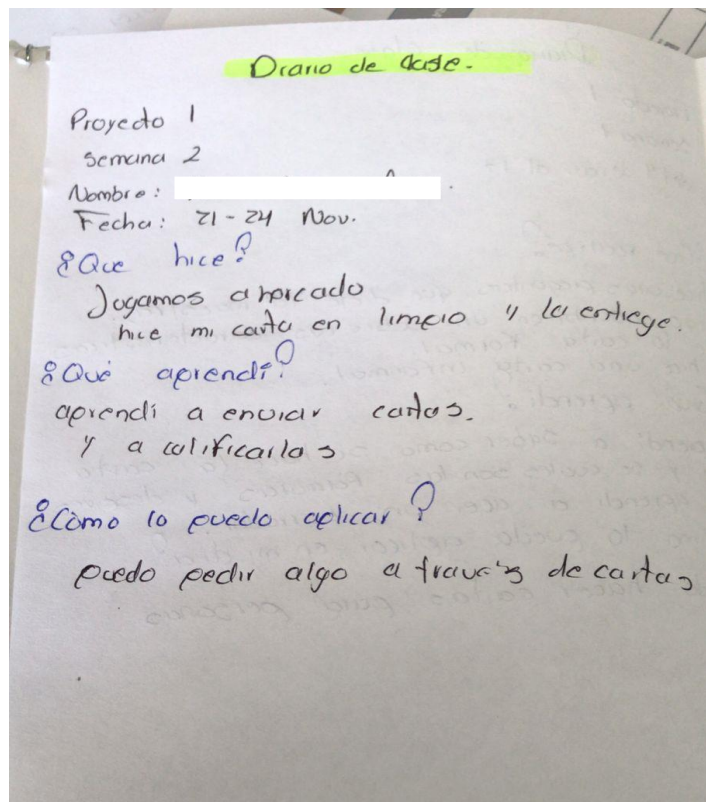 Diario de clase.
Proyecto 1
semana 2
Nombre:
Fecha: 21-24 Nov.
¿Que hice?
Jugamos ahorcado
hice mi carta en limpio y la entrege.
¿Qué aprendí?
aprendí a enviar cartas.
y a calificarlas
¿Cómo lo puedo aplicar?
puedo pedir algo a través de cartas